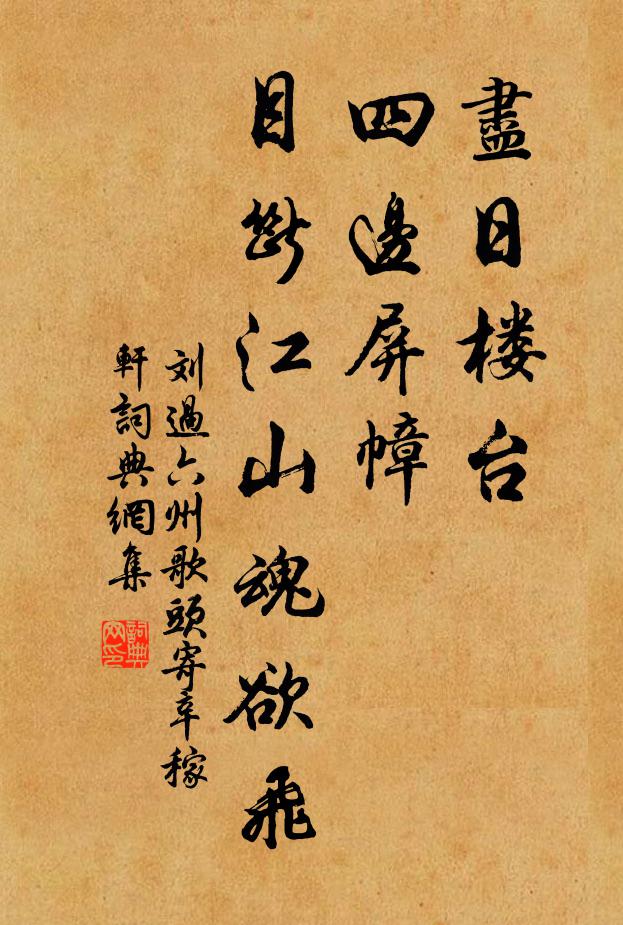 盡日楼台
四邊屏幛
目斷江山魂欲飛
刘過六州歌頭寄辛稼
軒詞典網集
詞典网印